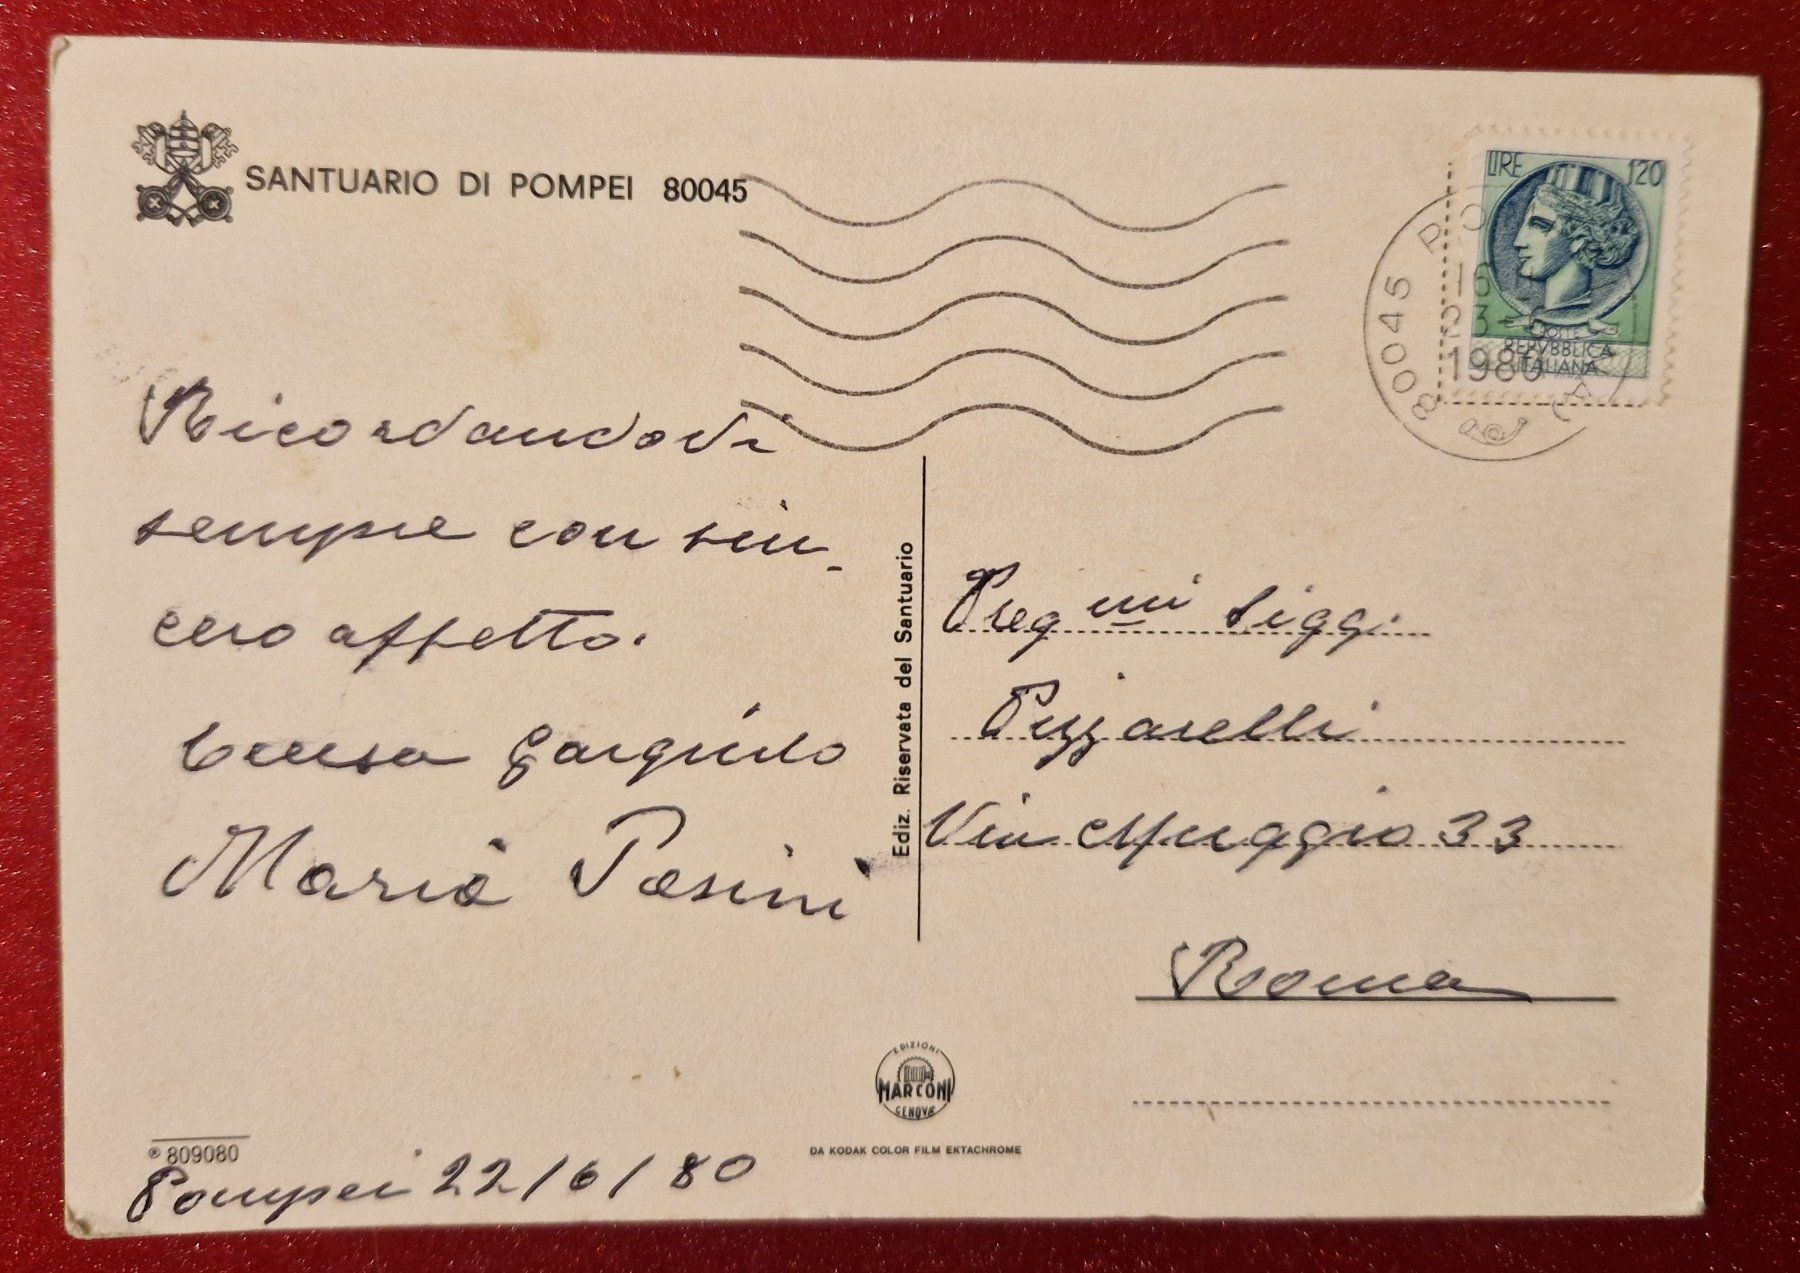 SANTUARIO DI POMPEI 80045
LIRE 120
POSTE
REPVBBLICA
ITALIANA
80045 PO
16
23-
1980
Ricordandovi
sempre con sin-
cero affetto.
Gargiulo
Maria Pasini
Ediz. Riservata del Santuario
Preg mi Sigg.
Pizzarelli
Via Muggio 33
Roma
EDIZIONI
MARCONI
GENOVA
DA KODAK COLOR FILM EKTACHROME
® 809080
Pompei 22/6/80